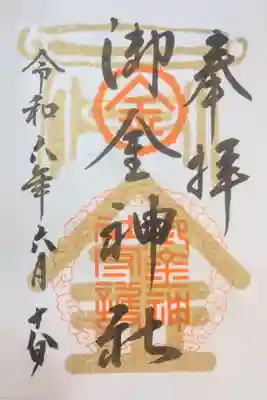 奉拝
御金神社
令和六年六月十
金
御金神